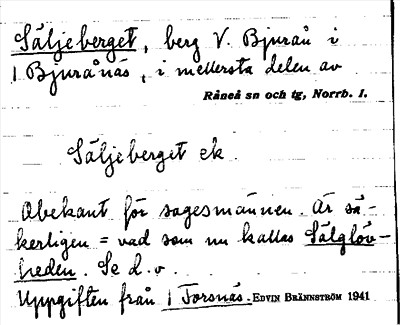 Säljeberget, berg V. Bjurån i
1 Bjurånäs, i mellersta delen av
Råneå sn och tg, Norrb. l.
Säljeberget ek.
Obekant för sagesmännen. Är sä-
kerligen = vad som nu kallas Sälglöv-
heden. Se d. o.
Uppgiften från 1 Forsnäs. EDVIN BRÄNNSTRÖM 1941